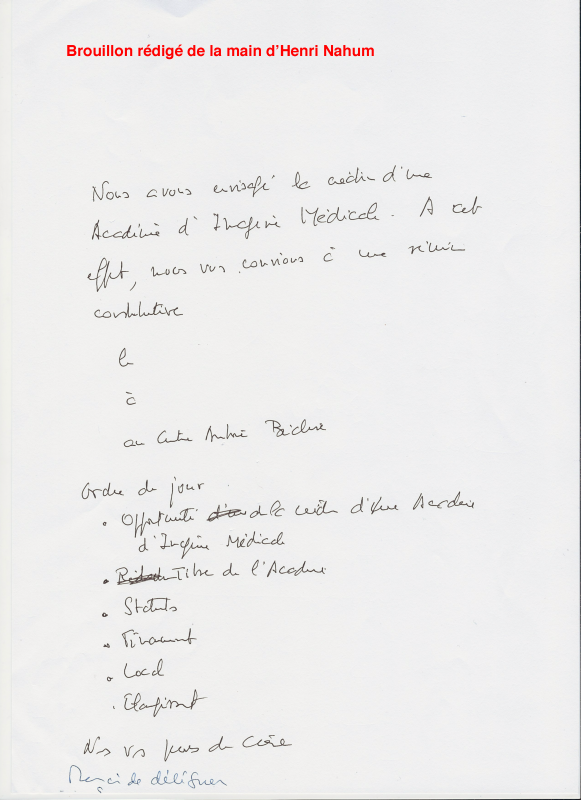 Brouillon rédigé de la main d'Henri Nahum
Nous avons envisagé la création d'une
Académie d'Imagerie Médicale. A cet
effet, nous vous convions à une réunion
constitutive
le
à
au Centre Antoine Béclère
Ordre du jour
. Opportunité de la création d'une Académie
d'Imagerie Médicale
. Titre de l'Académie
. Statuts
. Financement
. Local
. Elargissement
Ns vs de croire
Merci de déléguer